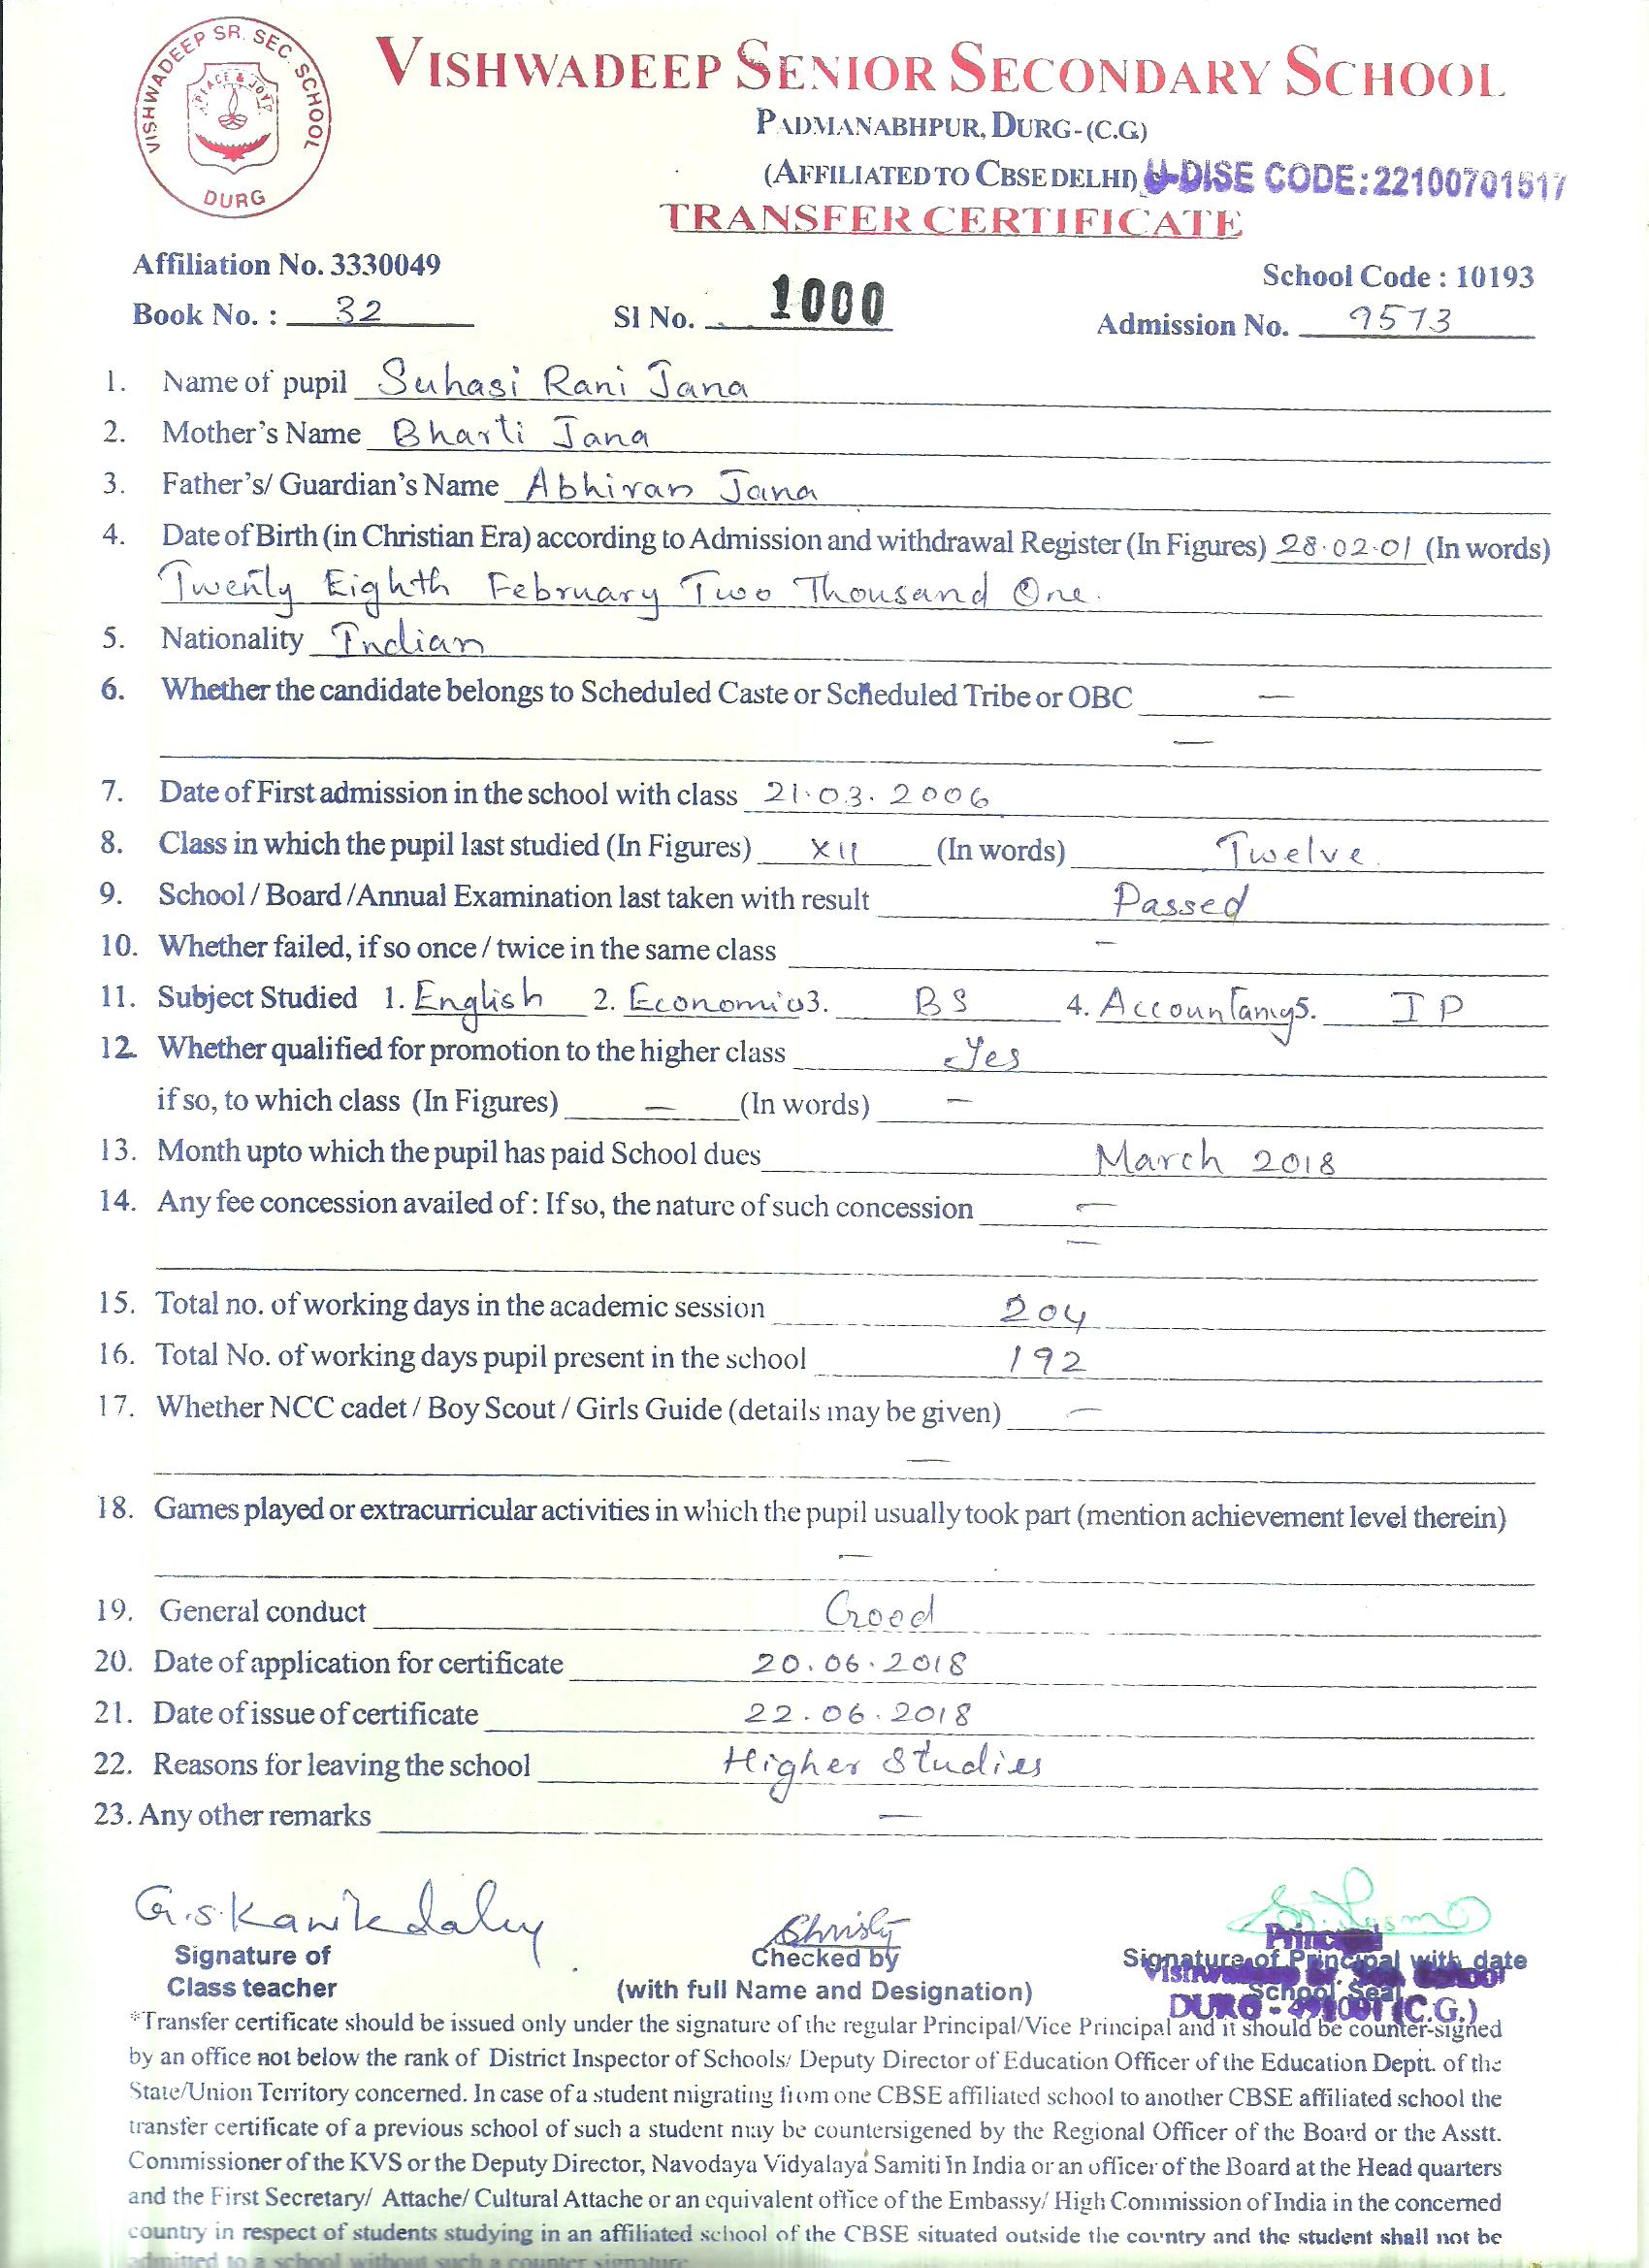 VISHWADEEP SR. SEC. SCHOOL
PEACE & JOY
DURG
VISHWADEEP SENIOR SECONDARY SCHOOL
PADMANABHPUR, DURG-(C.G.)
(AFFILIATED TO CBSE DELHI) U-DISE CODE:22100701517
TRANSFER CERTIFICATE
Affiliation No. 3330049 School Code : 10193
Book No. : 32 Sl No. 1000 Admission No. 9573
1. Name of pupil Suhasi Rani Jana
2. Mother's Name Bharti Jana
3. Father's/ Guardian's Name Abhiran Jana
4. Date of Birth (in Christian Era) according to Admission and withdrawal Register (In Figures) 28.02.01 (In words)
Twenty Eighth February Two Thousand One.
5. Nationality Indian
6. Whether the candidate belongs to Scheduled Caste or Scheduled Tribe or OBC —
—
7. Date of First admission in the school with class 21.03.2006
8. Class in which the pupil last studied (In Figures) XII (In words) Twelve
9. School / Board /Annual Examination last taken with result Passed
10. Whether failed, if so once / twice in the same class —
11. Subject Studied 1. English 2. Economics 3. BS 4. Accountancy 5. IP
12. Whether qualified for promotion to the higher class Yes
if so, to which class (In Figures) — (In words) —
13. Month upto which the pupil has paid School dues March 2018
14. Any fee concession availed of : If so, the nature of such concession —
—
15. Total no. of working days in the academic session 204
16. Total No. of working days pupil present in the school 192
17. Whether NCC cadet / Boy Scout / Girls Guide (details may be given) —
—
18. Games played or extracurricular activities in which the pupil usually took part (mention achievement level therein)
—
19. General conduct Good
20. Date of application for certificate 20.06.2018
21. Date of issue of certificate 22.06.2018
22. Reasons for leaving the school Higher Studies
23. Any other remarks —
Christy
Principal
Signature of Checked by Signature of Principal with date
Class teacher (with full Name and Designation) School Seal
DURG - 491001 (C.G.)
*Transfer certificate should be issued only under the signature of the regular Principal/Vice Principal and it should be counter-signed
by an office not below the rank of District Inspector of Schools/ Deputy Director of Education Officer of the Education Deptt. of the
State/Union Territory concerned. In case of a student migrating from one CBSE affiliated school to another CBSE affiliated school the
transfer certificate of a previous school of such a student may be countersigned by the Regional Officer of the Board or the Asstt.
Commissioner of the KVS or the Deputy Director, Navodaya Vidyalaya Samiti in India or an officer of the Board at the Head quarters
and the First Secretary/ Attache/ Cultural Attache or an equivalent office of the Embassy/ High Commission of India in the concerned
country in respect of students studying in an affiliated school of the CBSE situated outside the country and the student shall not be
admitted to a school without such a counter signature